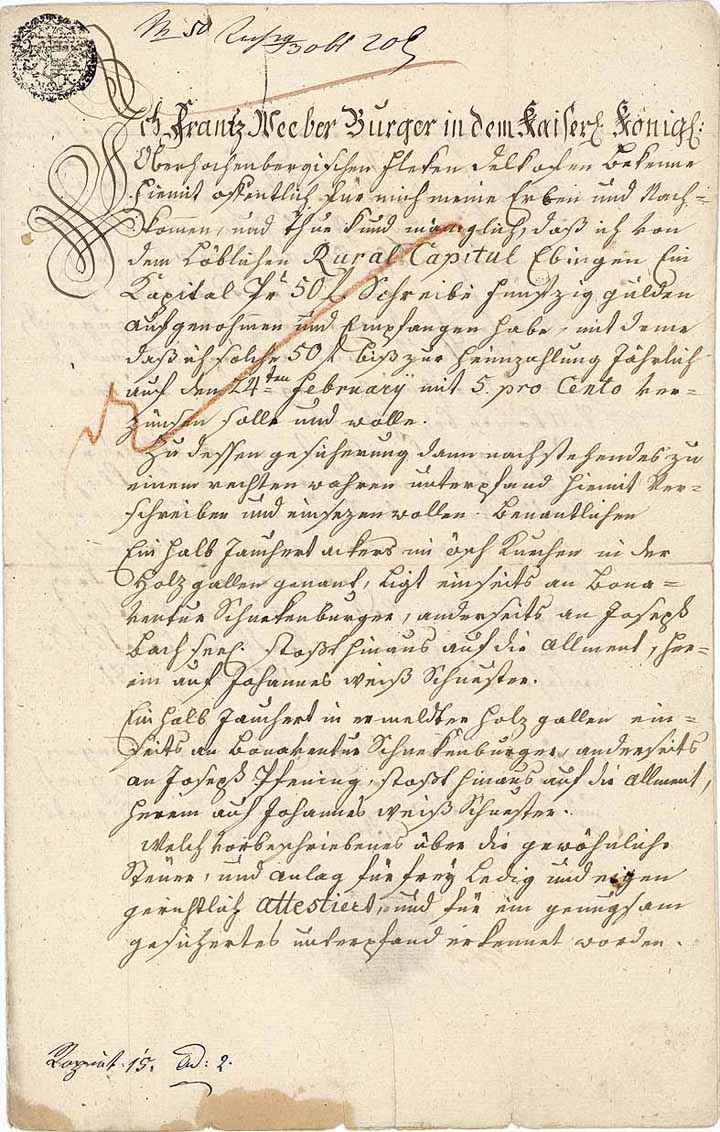 N 50
Ich Frantz Weeber Burger in dem Kaiserl. Königl:
Oberhochenbergischen fleken delkofen Bekenne
hiemit offentlich für mich meine Erben und Nach-
kommen, und thue kund männiglich, daß ich von
dem Löblichen Rural Capitul Ebingen Ein
Kapital Pr 50 f. Schreibe funfzig gulden
aufgenohmen und Empfangen habe, mit deme
daß ich solche 50 f biß zur heimzahlung Jährlich
auf den 24ten february mit 5. pro Cento ver-
zünsen solle und wolle.
Zu dessen gesicherung dann nachstehendes zu
einem rechten wahren unterpfand hiemit Ver-
schreiben und einsezen wollen. benantlichen
Ein halb Jauchert ackers im ösch in der
Holz gallen genant, ligt einseits an Bona-
ventur Schnekenburger, anderseits an Joseph
Bach seel. stoßt hinaus auf die allment, her-
ein auf Johannes weiß Schuester.
Ein halb Jauchert in ermeldter holz gallen ein-
seits an Bonaventur Schnekenburger, anderseits
an Joseph Pfening, stoßt hinaus auf die allment,
herein auf Johannes weiß Schuester.
Welch vorbeschriebenes über die gewöhnliche
Steuer, und anlag für frey Ledig und eigen
gerichtlich attestiert, und für ein genugsam
gesichertes unterpfand erkennet worden.
15. 2.